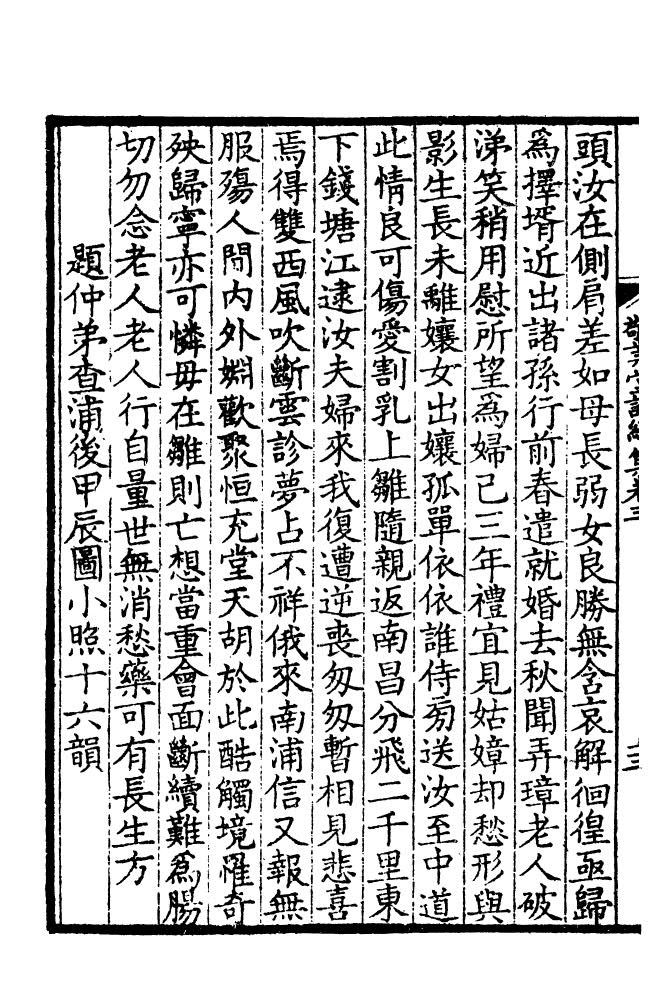 頭汝在側肩差如母長弱女良勝無含哀解徊徨亟歸
爲擇壻近出諸孫行前春遣就婚去秋聞弄璋老人破
涕笑稍用慰所望爲婦已三年禮宜見姑嫜却愁形與
影生長未離孃女出孃孤單依依誰侍㫄送汝至中道
此情良可傷愛割乳上雛隨親返南昌分飛二千里東
下錢塘江逮汝夫婦來我復遭逆喪匆匆暫相見悲喜
焉得雙西風吹斷雲診夢占不祥俄來南浦信又報無
服殤人間内外姻歡聚恒充堂天胡於此酷觸境罹奇
殃歸寧亦可憐毋在雛則亡想當重會面斷續難爲腸
切勿念老人老人行自量世無消愁藥可有長生方
題仲弟查浦後甲辰圖小照十六韻